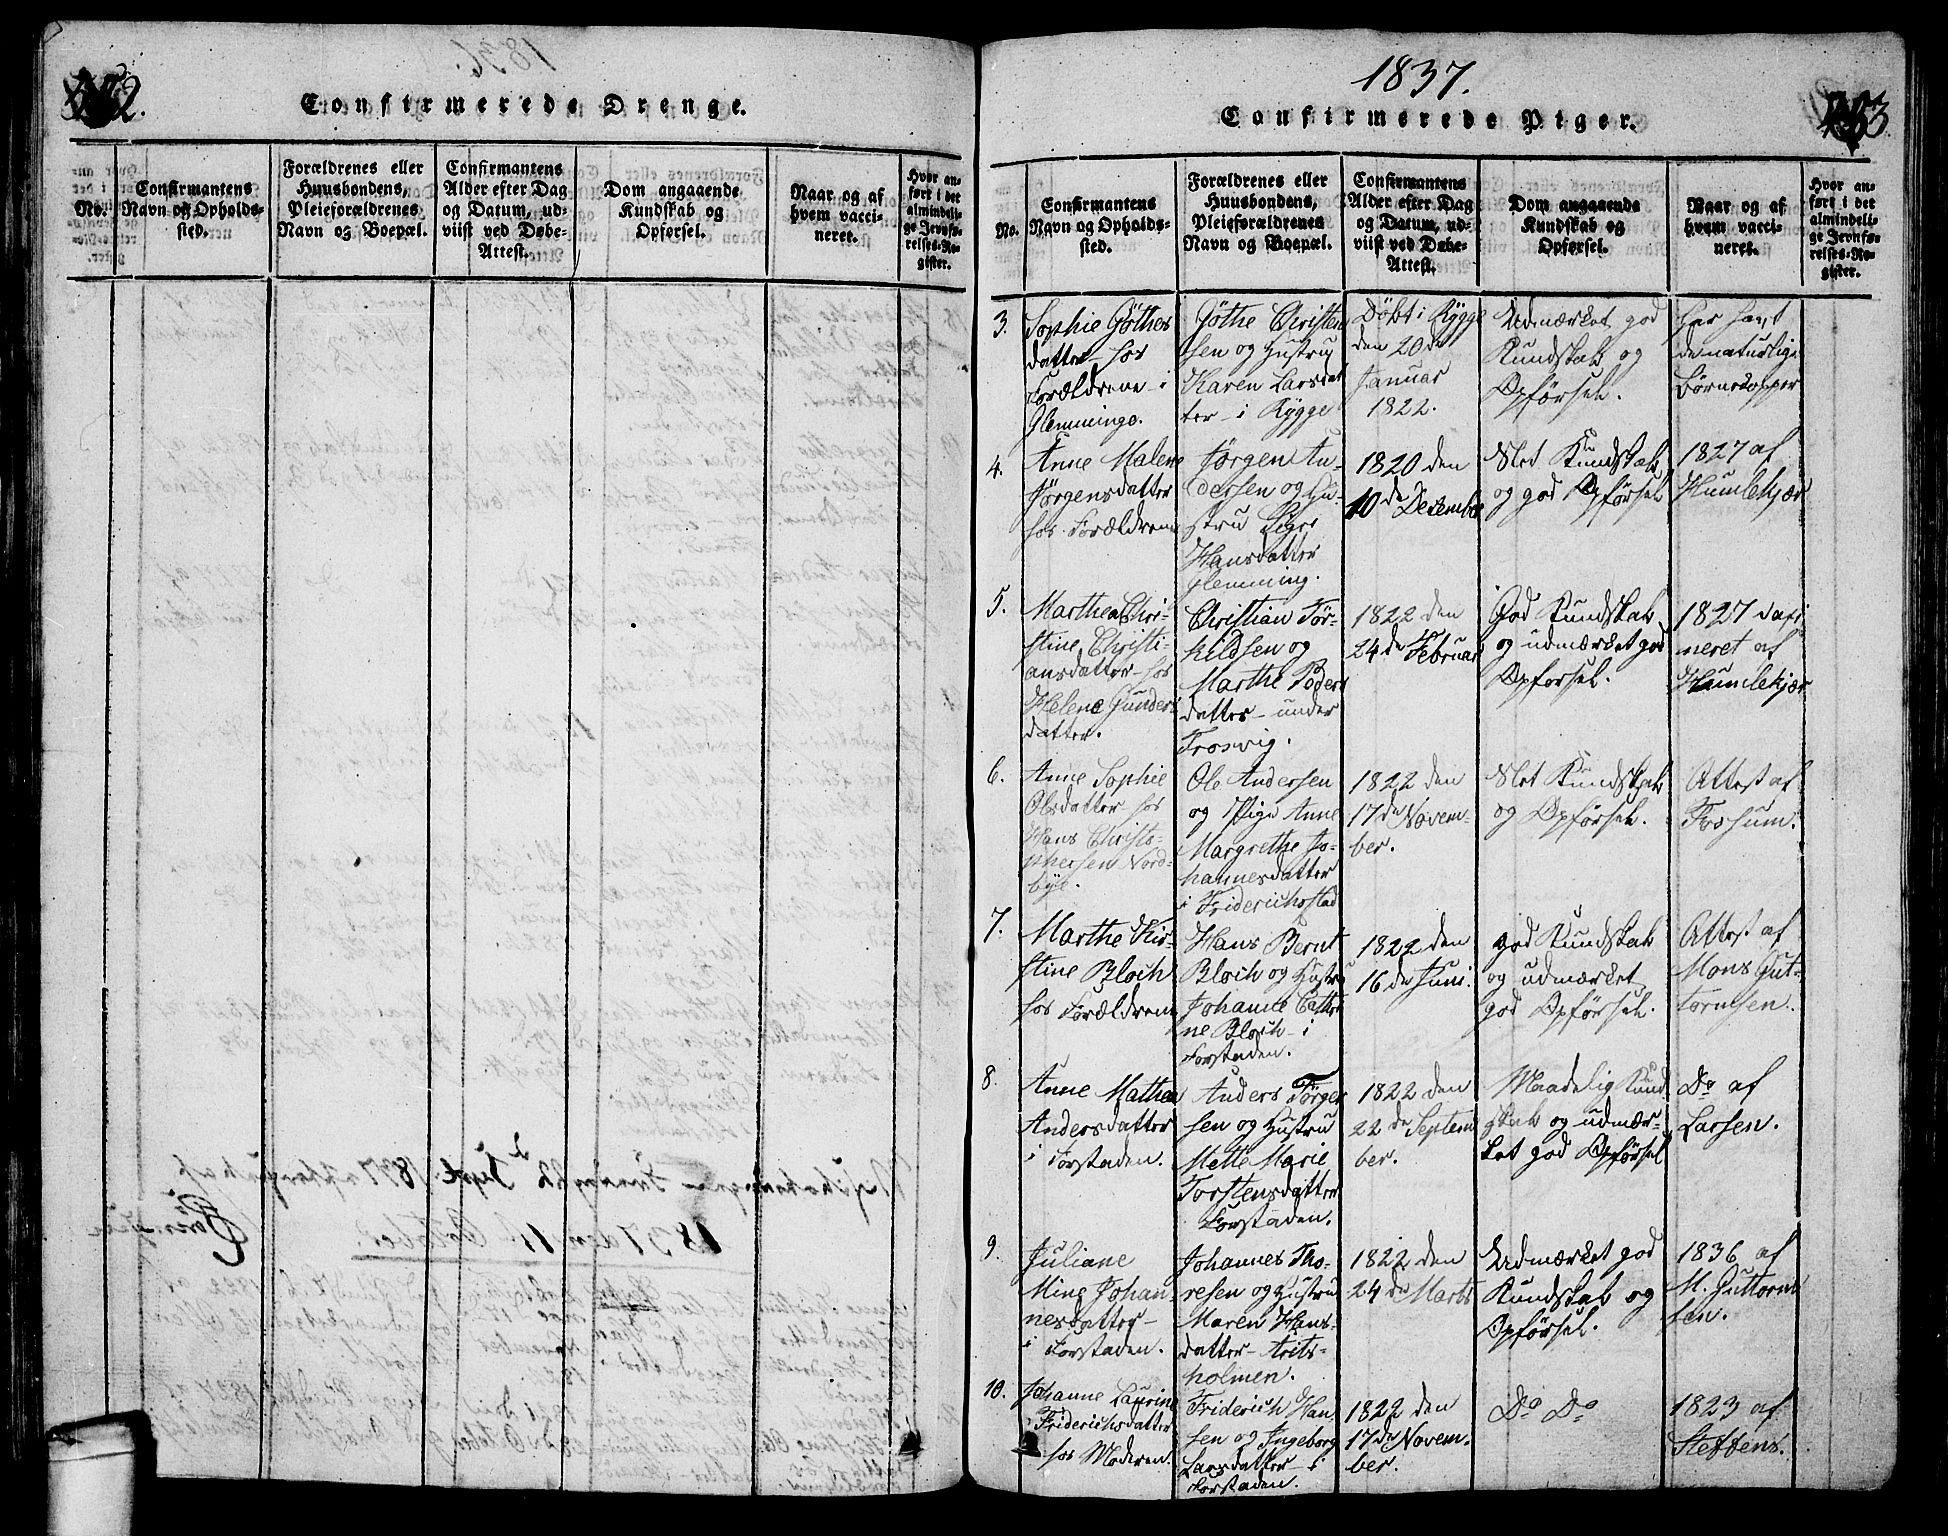 1836.
Confirmerede Drenge.
No.
Confirmantens
Navn og Opholds-
sted.
Forældrenes eller
Huusbondens,
Pleieforældrenes
Navn og Boepæl.
Confirmantens
Alder efter Dag
og Datum, ud-
viist ved Døbe-
Attest.
Dom angaaende
Kundskab og
Opførsel.
Naar og af
hvem vacci-
neret.
Hvor an-
ført i det
almindeli-
ge Jevnfø-
relses-Re-
gister.
1837.
Confirmerede Piger.
No.
Confirmantens
Navn og Opholds-
sted.
Forældrenes eller
Huusbondens,
Pleieforældrenes
Navn og Boepæl.
Confirmantens
Alder efter Dag
og Datum, ud-
viist ved Døbe-
Attest.
Dom angaaende
Kundskab og
Opførsel.
Naar og af
hvem vacci-
neret.
Hvor an-
ført i det
almindeli-
ge Jevnfø-
relses-Re-
gister.
3.
Sophie Göthes
datter hos
Forældrene i
Glemminge.
Göthe Christen
sen og Hustru
Karen Larsdat
ter i Rygge
Döbt i Rygge
den 20de
Januar
1822.
Udmærket god
Kundskab og
Opførsel.
Har havt
de naturlige
Börnekopper
4.
Anne Malene
Jörgensdatter
hos Forældrene
Jörgen An-
dersen og Hu-
stru
Hansdatter
Glemming.
1820 den
10de Desember
Slet Kundskab
og god Opførsel
1827 af
Humlekjær
5.
Marthea Chri-
stine Christi-
ansdatter hos
Helene Gunders
datter.
Christian Tör-
kildsen og
Marthe Peders
datter under
Trosvig.
1822 den
24de Februar
God Kundskab
og udmærket god
Opførsel.
1827 vaxi
neret af
Humlekjær
6.
Anne Sophie
Olsdatter hos
Hans Christo-
phersen Nord-
bye.
Ole Andersen
og Pige Anne
Margrethe Jo-
hannesdatter
i Friderichsstad
1822 den
17de Novem-
ber.
Slet Kundskab
og Opførsel.
Attest af
Fossum.
7.
Marthe Kir-
stine Bloch
hos Forældrene
Hans Bernt
Bloch og Hustru
Johanne Cathri
ne Bloch i
Forstaden.
1822 den
16de Juni.
god Kundskab
og udmærket
god Opførsel.
Attest af
Mons Gut-
tormsen.
8.
Anne Mathea
Andersdatter
i Forstaden.
Anders Törger
sen og Hustru
Mette Marie
Torstensdatter
Forstaden.
1822 den
22de Septem
ber.
Maadelig Kund
skab og udmær-
ket god Opførsel
Do af
Larsen.
9.
Juliane
Mine Johan-
nesdatter
i Forstaden.
Johannes Tho-
resen og Hustru
Maren Hans-
datter
holmen.
1822 den
24de Marts
Udmærket god
Kundskab og
Opførsel.
1836 af
M. Guttorm
sen.
10.
Johanne Laurine
Friderichsdatter
hos Moderen.
Friderich Han
sen og Ingeborg
Larsdatter i
Forstaden.
1822 den
17de Novem-
ber.
Do Do
1823 af
Steffens.